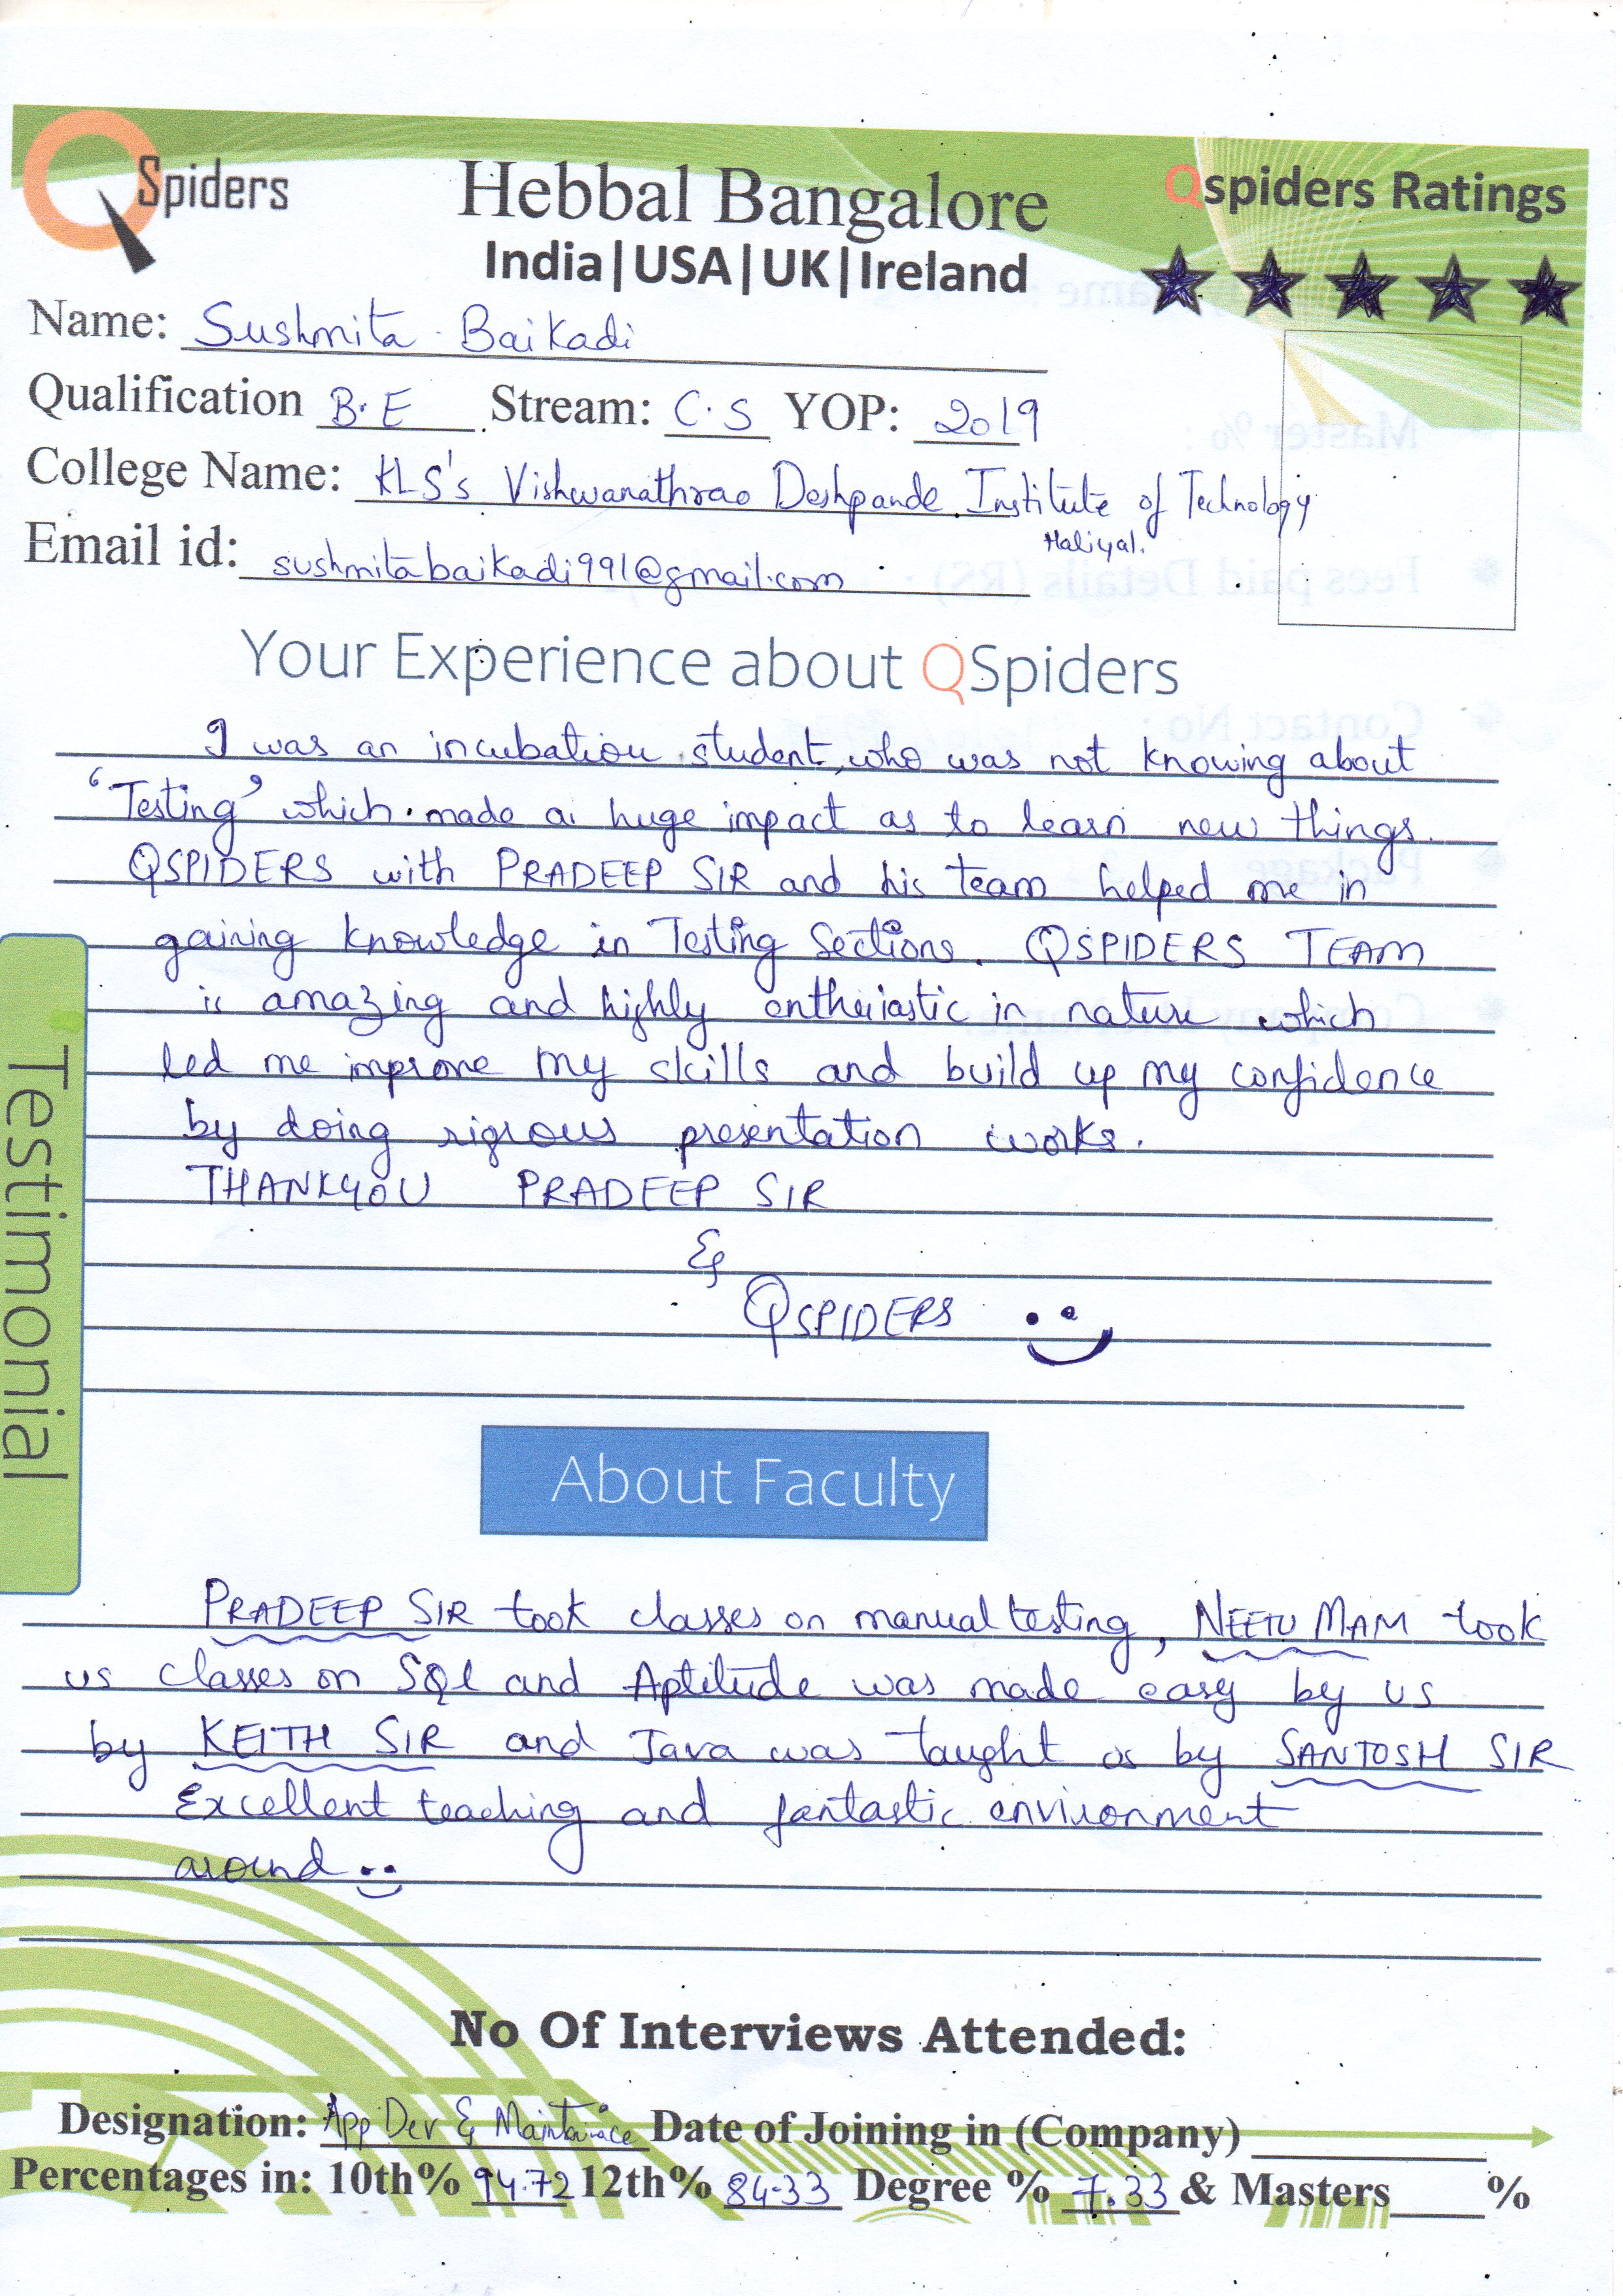 QSpiders
Hebbal Bangalore
India|USA|UK|Ireland
Qspiders Ratings
Name: Sushmita Baikadi
Qualification B.E Stream: C.S YOP: 2019
College Name: KLS's Vishwanathrao Deshpande Institute of Technology
Haliyal.
Email id: sushmitabaikadi991@gmail.com
Your Experience about QSpiders
I was an incubation student, who was not knowing about
'Testing' which made a huge impact as to learn new things.
QSPIDERS with PRADEEP SIR and his team helped me in
gaining knowledge in Testing Sections. QSPIDERS TEAM
is amazing and highly enthuiastic in nature which
led me improve my skills and build up my confidence
by doing rigrous presentation works.
THANKYOU PRADEEP SIR
&
QSPIDERS
Testimonial
About Faculty
PRADEEP SIR took classes on manual testing, NEETU MAM took
us classes on SQL and Aptitude was made easy by us
by KEITH SIR and Java was taught by SANTOSH SIR
Excellent teaching and fantastic environment
around
No Of Interviews Attended:
Designation: App Dev & Maintainace Date of Joining in (Company)
Percentages in: 10th% 94.72 12th% 84.33 Degree % 7.33 & Masters %